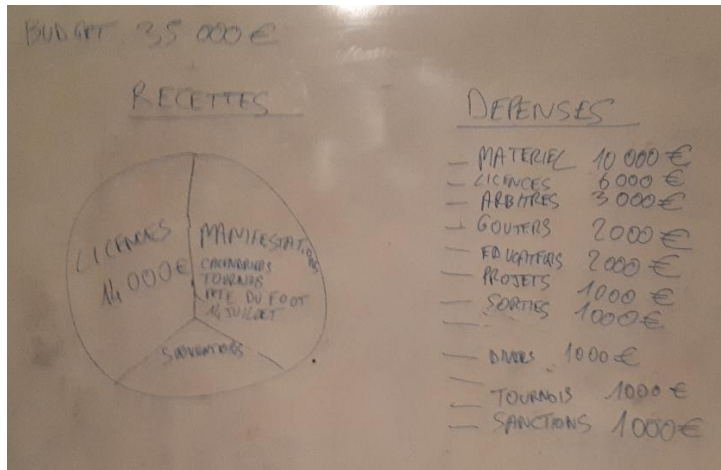 BUDGET 35 000 €
RECETTES
LICENCES
14 000 €
MANIFESTATIONS
CALENDRIERS
TOURNOIS
FETE DU FOOT
14 JUILLET
SUBVENTIONS
DEPENSES
— MATERIEL 10 000 €
— LICENCES 6 000 €
— ARBITRES 3 000 €
— GOUTERS 2000 €
— EDUCATEURS 2000 €
— PROJETS 1000 €
— SORTIES 1000 €
— DIVERS 1000 €
— TOURNOIS 1000 €
— SANCTIONS 1000 €